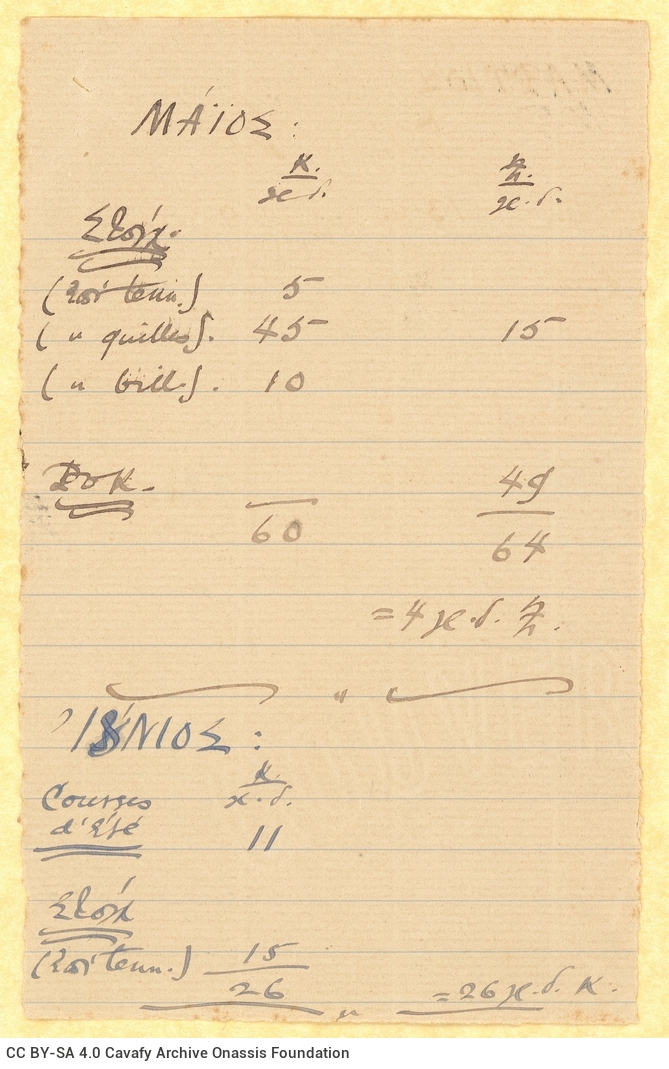 ΜΆΪΟΣ :
Κ.
χ.δ. χ.δ.
Στοίχ.
( tenn.) 5
( " quilles). 45 15
( " bill.). 10
49
60 64
= 4 χ.δ.
"
ΊΟΎΝΙΟΣ :
Κ.
Courses χ.δ.
d'Été 11
Στοίχ
( tenn.) 15
26 = 26 χ.δ. Κ.
"
CC BY-SA 4.0 Cavafy Archive Onassis Foundation